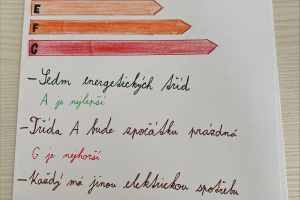 E
F
G
- Sedm energetických tříd
A je nejlepší
- Třída A bude zpočátku prázdná
G je nejhorší
- Každý má jinou elektrickou spotřebu